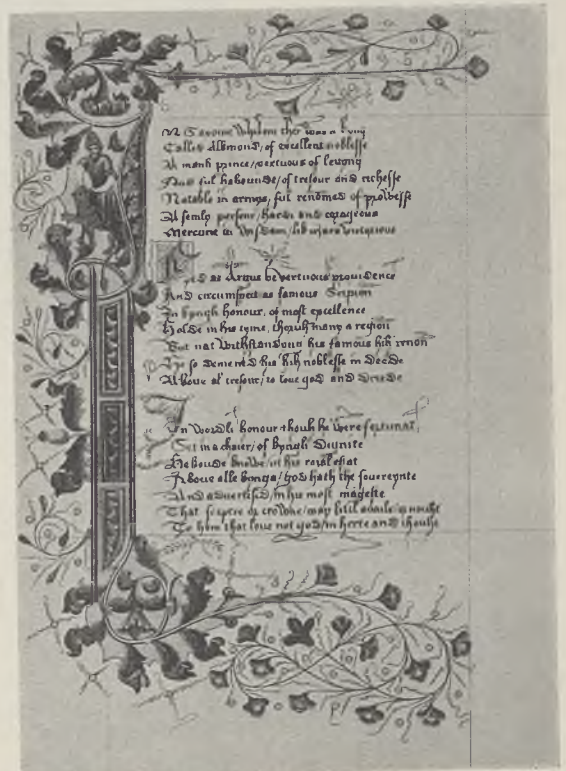 In Saxone whilom ther was a kyng
Called Alkmond / of excellent noblesse
A manli prince / vertuous of levyng
And ful habounde / of tresour and richesse
Notable in armys / ful renomed of prowesse
A semly persone / hardi and corageous
Mercurie in wisdam / lik victorious
as Argus be vertuous providence
And circumspect as famous Scipion
In kyngli honour / of most excellence
Holde in his tyme / thoruh many a region
But nat withstandyng his famous hih renon
He so demened his hih noblesse in deede
Above al tresour / to love god and dreede
In wordli honour thouh he were fortunat,
Set in a chaier / of kyngli dignite
He koude knowe / in his roial estat
Above alle kynges / god hath the sovereynte
And advertised / in his most mageste
That sceptre or crowne / may litil availe or nouht
To hem that love not god / in herte and thouht